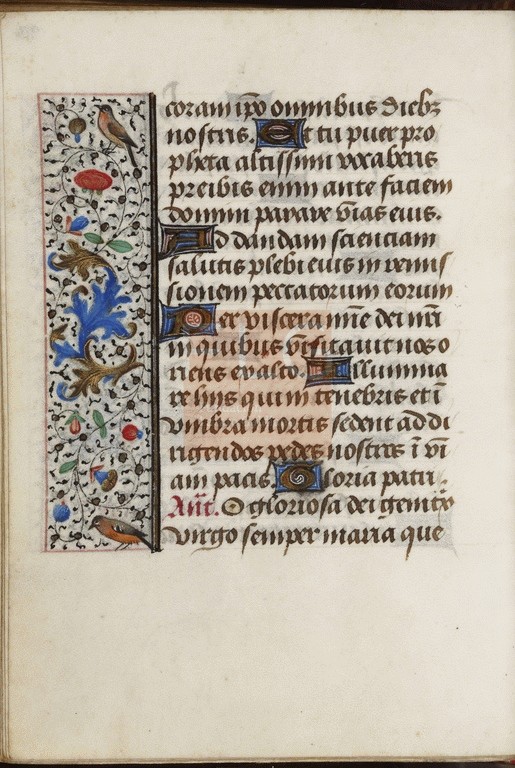 coram ip̄o omnibus dieb⁊
nostris. Et tu puer pro
pheta altissimi vocaberis
preibis enim ante faciem
domini parare vias eius.
Ad dandam scienciam
salutis plebi eius in remis
sionem peccatorum eorum
Per viscera mīe dei nr̄i
in quibus visitauit nos o
riens ex alto. Illumina
re hiis qui in tenebris et ī
vmbra mortis sedent ad di
rigendos pedes nostros ī vi
am pacis. Gloria patri.
Añt. O gloriosa dei genitrix
virgo semper maria que